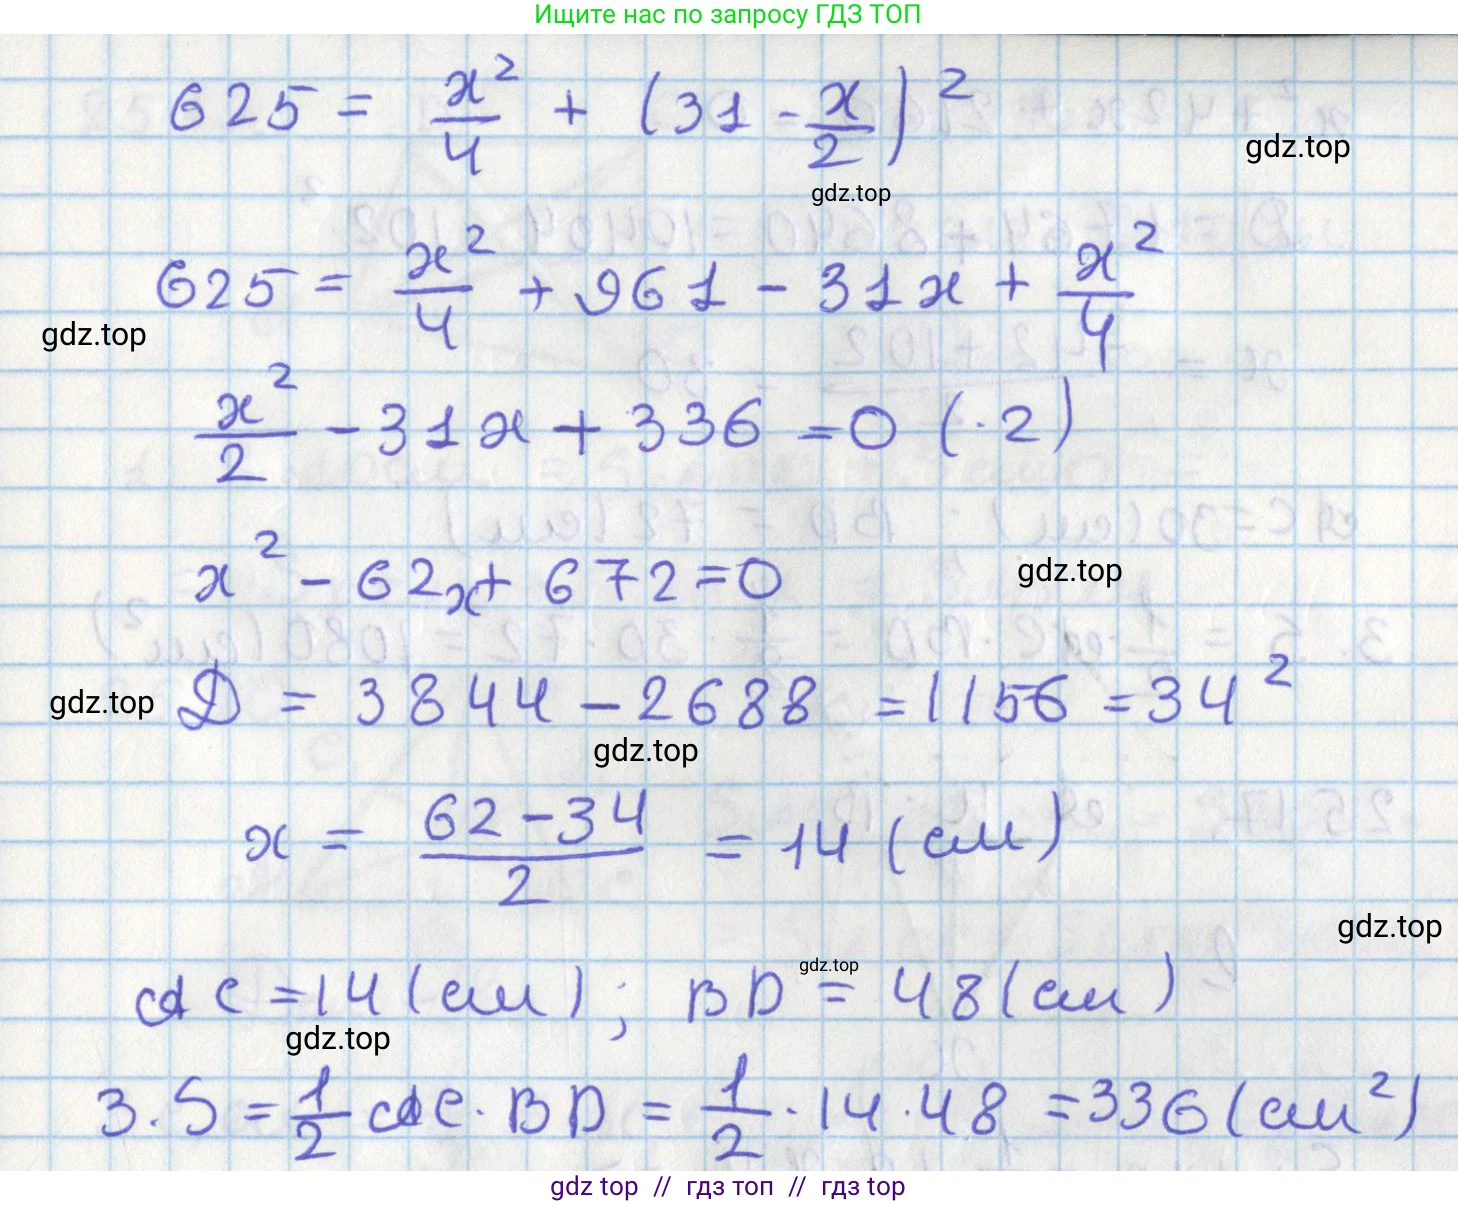 Ищите нас по запросу ГДЗ ТОП
625 = x²/4 + (31 - x/2)²
gdz.top
gdz.top
625 = x²/4 + 961 - 31x + x²/4
gdz.top
x²/2 - 31x + 336 = 0 (·2)
x² - 62x + 672 = 0
gdz.top
gdz.top
D = 3844 - 2688 = 1156 = 34²
gdz.top
x = (62 - 34)/2 = 14 (см)
gdz.top
AC = 14 (см); BD = 48 (см)
gdz.top
gdz.top
3. S = 1/2 AC · BD = 1/2 · 14 · 48 = 336 (см²)
gdz top // гдз топ // гдз top